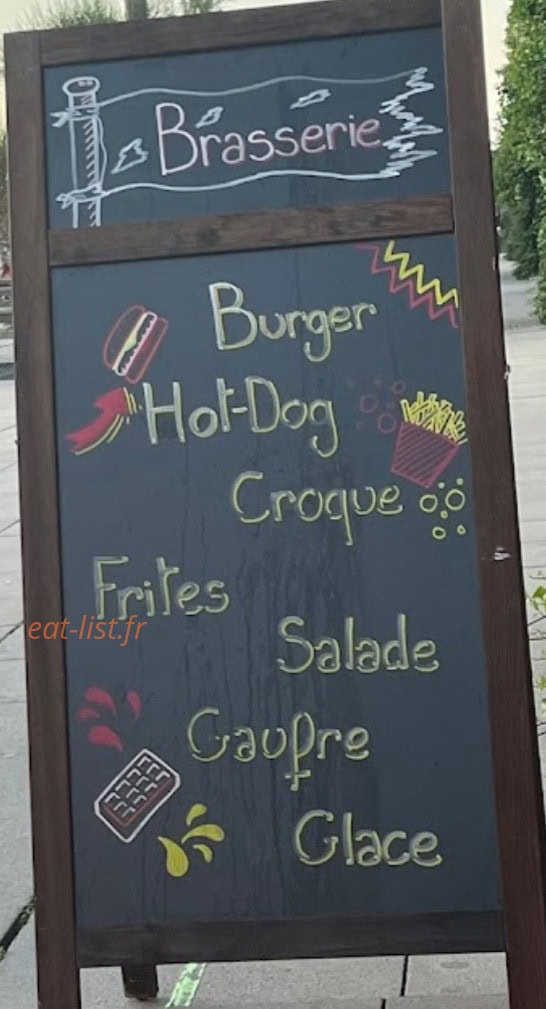 Brasserie
Burger
Hot-Dog
Croque
Frites
eat-list.fr
Salade
Gaufre
Glace